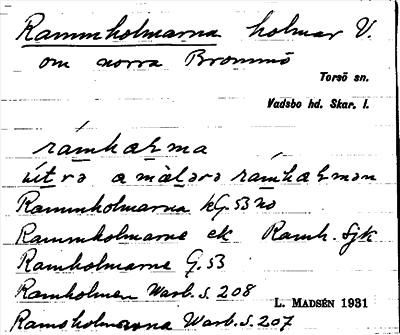 Rammholmarna holmar V.
om norra Brommö
Torsö sn.
Vadsbo hd. Skar. l.
råmhəlma
Rammholmarna kG. 53 nö
Rammholmarne ek Ramh. Sjk
Ramholmarne G. 53
Ramholmen Warb. s. 208
L. MADSÉN 1931
Ramsholmarna Warb. s. 207